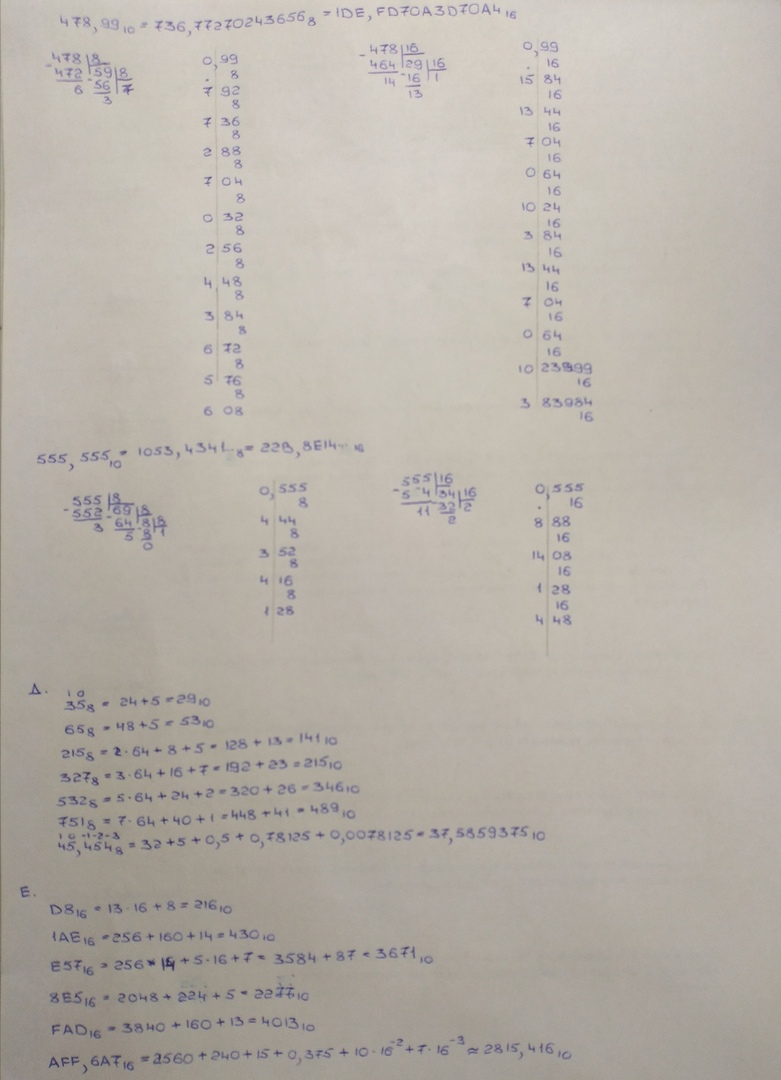 478,99₁₀ = 736,77270243656₈ = 1DE,FD70A3D70A4₁₆
478 8
- 472 59 8
6 - 56 7
3
0,99
8
7 92
8
7 36
8
2 88
8
7 04
8
0 32
8
2 56
8
4 48
8
3 84
8
6 72
8
5 76
8
6 08
- 478 16
464 29 16
14 - 16 1
13
0,99
16
15 84
16
13 44
16
7 04
16
0 64
16
10 24
16
3 84
16
13 44
16
7 04
16
0 64
16
10 23999
16
3 83984
16
555,555₁₀ = 1053,4341...₈ = 22B,8E14...₁₆
- 555 8
552 69 8
3 - 64 8 8
5 - 8 1
0
0,555
8
4 44
8
3 52
8
4 16
8
1 28
- 555 16
5 4 34 16
11 32 2
2
0,555
16
8 88
16
14 08
16
1 28
16
4 48
Д.
1 0
35₈ = 24+5 = 29₁₀
65₈ = 48+5 = 53₁₀
215₈ = 2·64 + 8 + 5 = 128 + 13 = 141₁₀
327₈ = 3·64 + 16 + 7 = 192 + 23 = 215₁₀
532₈ = 5·64 + 24 + 2 = 320 + 26 = 346₁₀
751₈ = 7·64 + 40 + 1 = 448 + 41 = 489₁₀
1 0 -1 -2 -3
45,454₈ = 32 + 5 + 0,5 + 0,78125 + 0,0078125 = 37,5859375₁₀
Е.
D8₁₆ = 13·16 + 8 = 216₁₀
1AE₁₆ = 256 + 160 + 14 = 430₁₀
E57₁₆ = 256 · 14 + 5·16 + 7 = 3584 + 87 = 3671₁₀
8E5₁₆ = 2048 + 224 + 5 = 2277₁₀
FAD₁₆ = 3840 + 160 + 13 = 4013₁₀
AFF,6A7₁₆ = 2560 + 240 + 15 + 0,375 + 10·16⁻² + 7·16⁻³ ≈ 2815,416₁₀